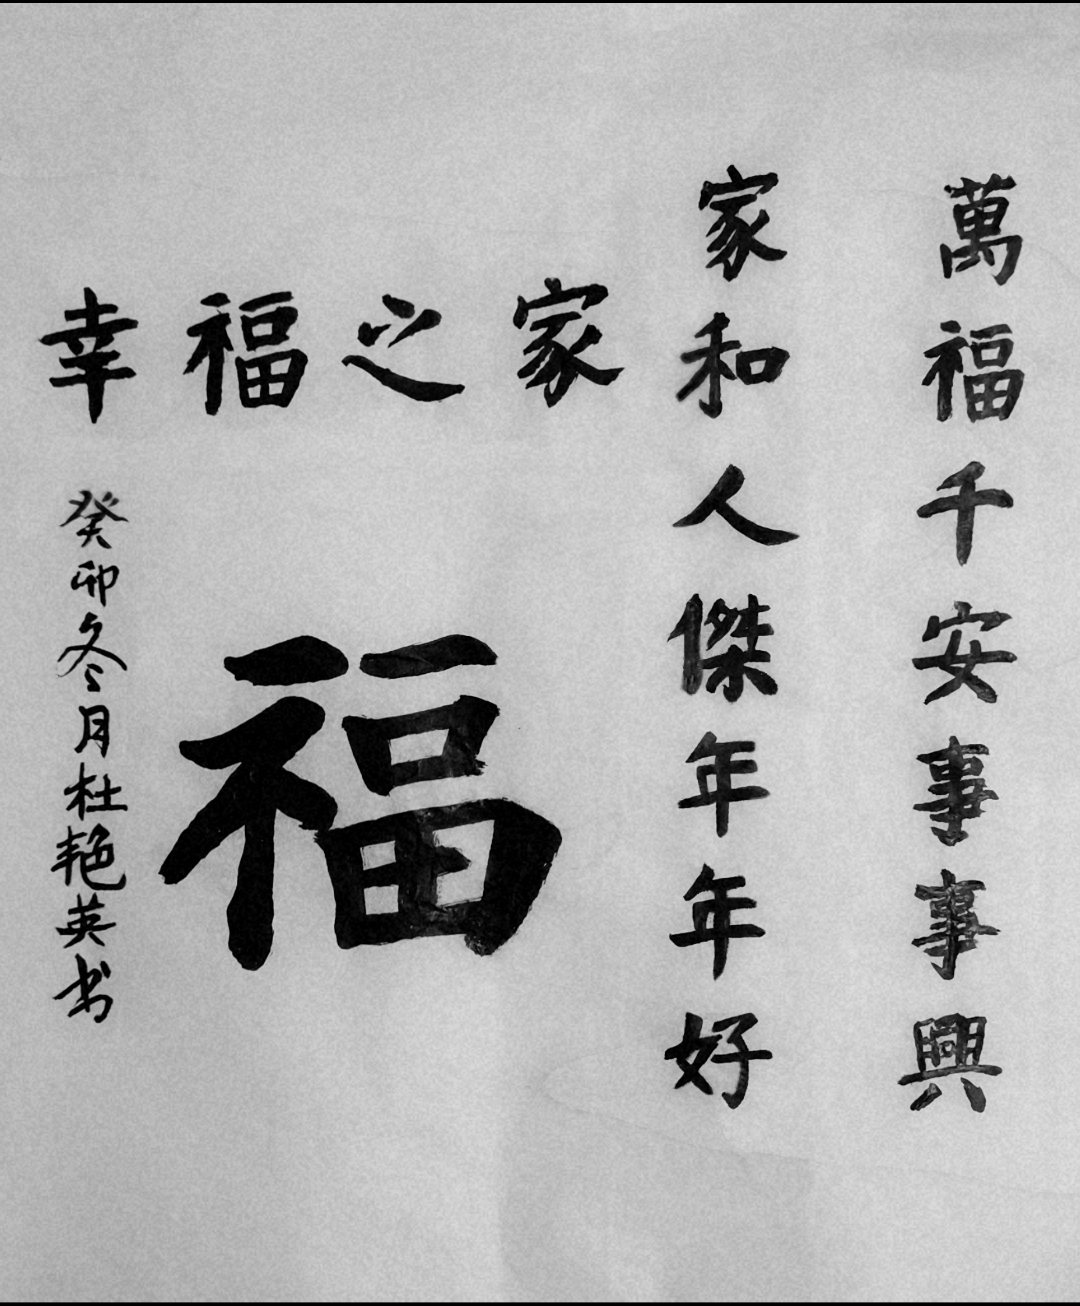 萬福千安事事興
家和人傑年年好
幸福之家
福
癸卯冬月杜艳英书